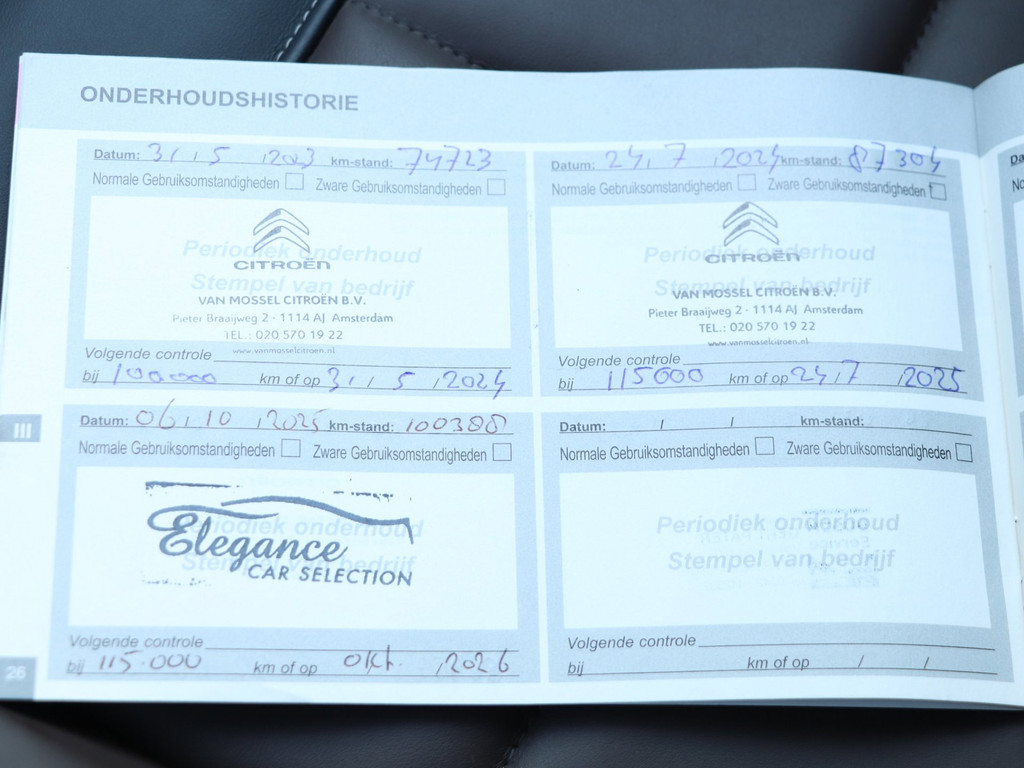 ONDERHOUDSHISTORIE
Datum: 31 / 5 / 2023 km-stand: 74723
Normale Gebruiksomstandigheden Zware Gebruiksomstandigheden
Periodiek onderhoud
CITROËN
Stempel van bedrijf
VAN MOSSEL CITROEN B.V.
Pieter Braaijweg 2 - 1114 AJ Amsterdam
TEL.: 020 570 19 22
www.vanmosselcitroen.nl
Volgende controle
bij 100000 km of op 31 / 5 / 2024
Datum: 24 / 7 / 2024 km-stand: 87304
Normale Gebruiksomstandigheden Zware Gebruiksomstandigheden
Periodiek onderhoud
CITROËN
Stempel van bedrijf
VAN MOSSEL CITROEN B.V.
Pieter Braaijweg 2 - 1114 AJ Amsterdam
TEL.: 020 570 19 22
www.vanmosselcitroen.nl
Volgende controle
bij 115000 km of op 24 / 7 / 2025
III
Datum: 06 / 10 / 2025 km-stand: 100388
Normale Gebruiksomstandigheden Zware Gebruiksomstandigheden
Periodiek onderhoud
Elegance
Stempel van bedrijf
CAR SELECTION
Volgende controle
bij 115.000 km of op okt. / 2026
Datum: / / km-stand:
Normale Gebruiksomstandigheden Zware Gebruiksomstandigheden
Periodiek onderhoud
Stempel van bedrijf
Volgende controle
bij km of op / /
26